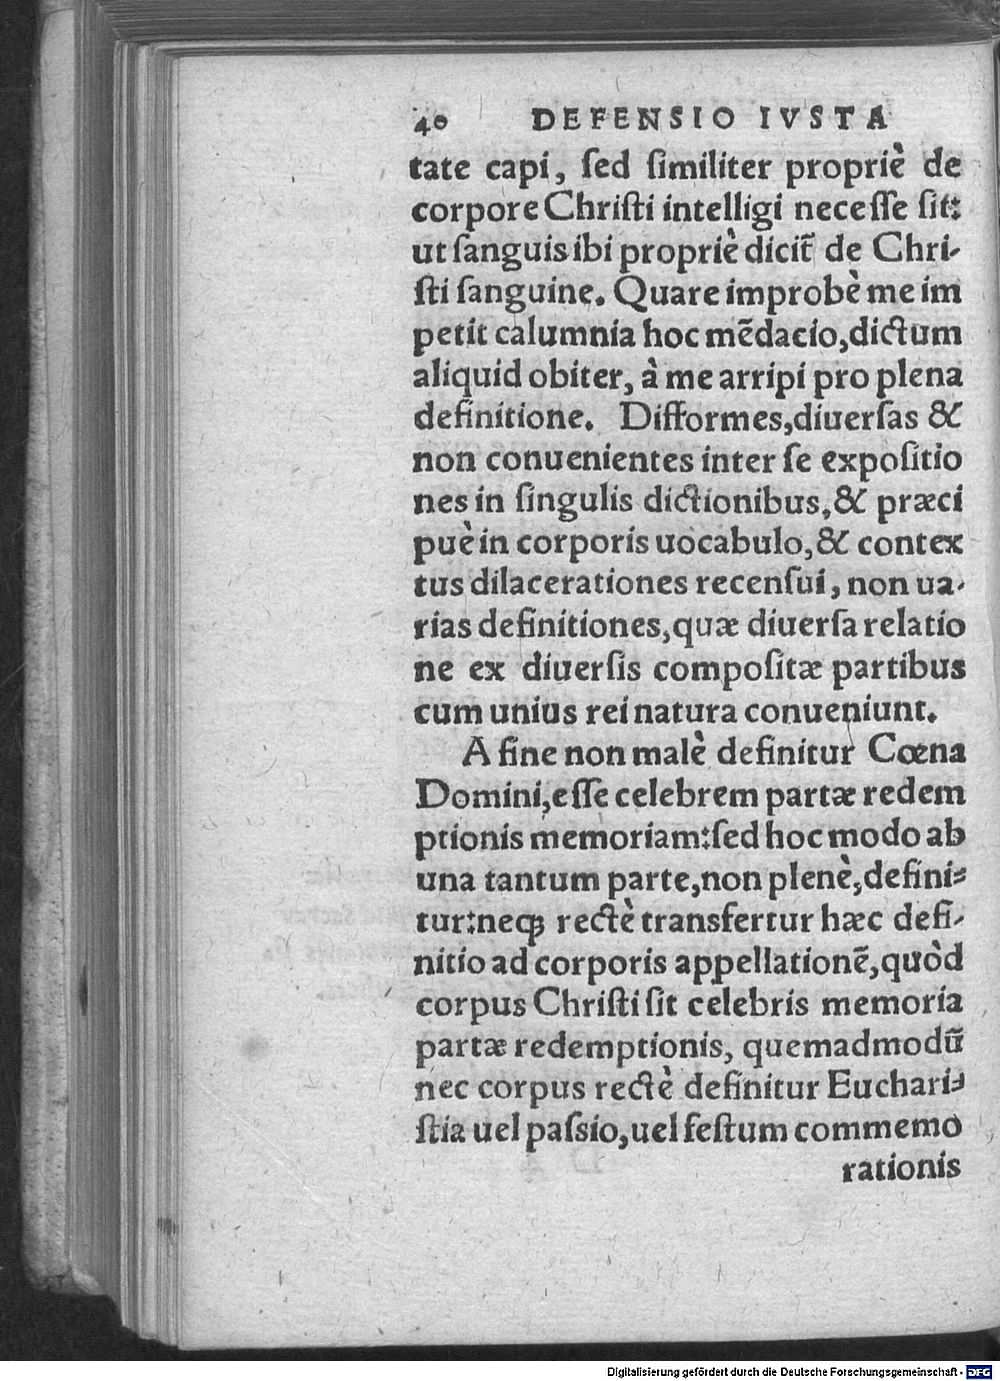 40 DEFENSIO IVSTA
tate capi, ſed ſimiliter propriè de
corpore Chriſti intelligi neceſſe ſit:
ut ſanguis ibi propriè dicit̃ de Chri-
ſti ſanguine. Quare improbè me im
petit calumnia hoc mẽdacio, dictum
aliquid obiter, à me arripi pro plena
definitione. Difformes, diuerſas &
non conuenientes inter ſe expoſitio
nes in ſingulis dictionibus, & præci
puè in corporis uocabulo, & contex
tus dilacerationes recenſui, non ua-
rias definitiones, quæ diuerſa relatio
ne ex diuerſis compoſitæ partibus
cum unius rei natura conueniunt.
A fine non malè definitur Cœna
Domini, eſſe celebrem partæ redem
ptionis memoriam: ſed hoc modo ab
una tantum parte, non plenè, defini-
tur: neqꝫ rectè transfertur hæc defi-
nitio ad corporis appellationẽ, quòd
corpus Chriſti ſit celebris memoria
partæ redemptionis, quemadmodũ
nec corpus rectè definitur Euchari-
ſtia uel paſsio, uel feſtum commemo
rationis
Digitalisierung gefördert durch die Deutsche Forschungsgemeinschaft - DFG